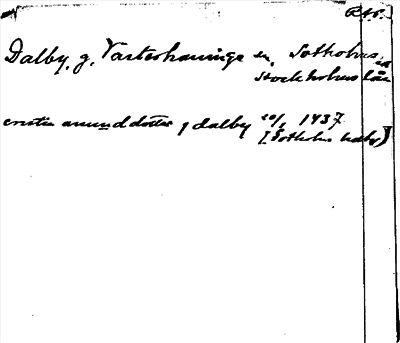 RAp.
Dalby, g. Västerhaninge sn, Sotholms hd
Stockholms län
cristin amund dotter j dalby 20/1 1437
[Sotholms hdbr]